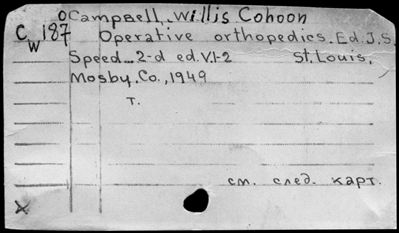 OCampbell, Willis Cohoon
CW 187 Operative orthopedics. Ed. J.S.
Speed... 2-d ed. V.1-2 St. Louis,
Mosby, Co., 1949
T.
см. след. карт.
X